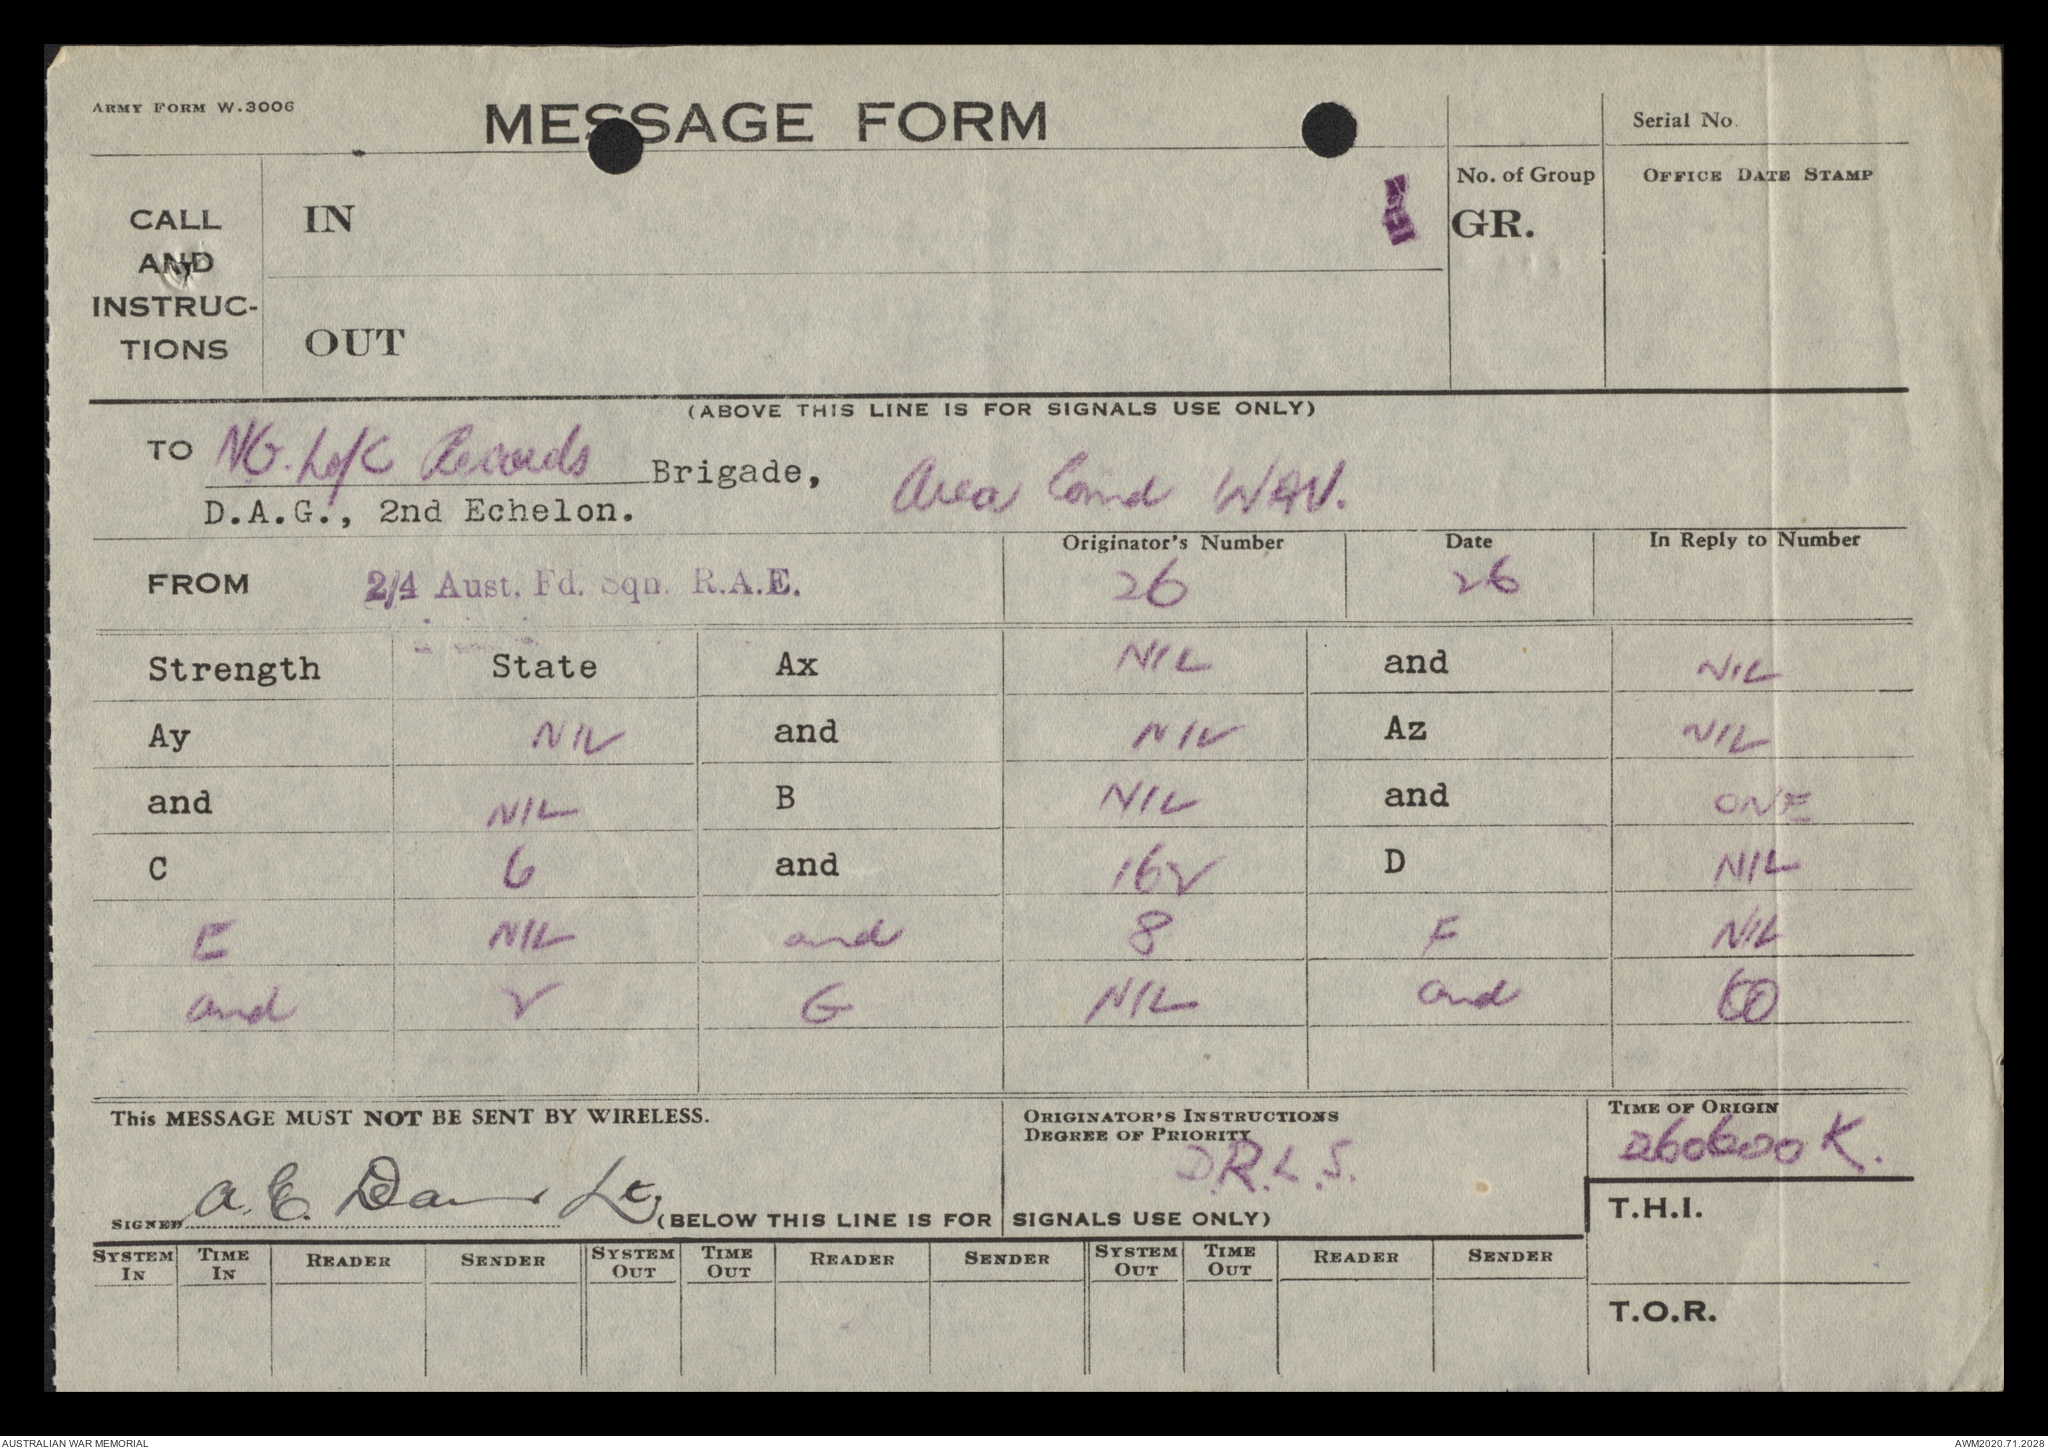 ARMY FORM W.3006
MESSAGE FORM
Serial No.
CALL
AND
INSTRUC-
TIONS
IN
OUT
No. of Group
GR.
OFFICE DATE STAMP
(ABOVE THIS LINE IS FOR SIGNALS USE ONLY)
TO NG. LofC Records Brigade, Area Comd WAU.
D.A.G., 2nd Echelon.
FROM 2/4 Aust. Fd. Sqn. R.A.E.
Originator's Number 26
Date 26
In Reply to Number
Strength State Ax NIL and NIL
Ay NIL and NIL Az NIL
and NIL B NIL and ONE
C 6 and 162 D NIL
E NIL and 8 F NIL
and 2 G NIL and 60
This MESSAGE MUST NOT BE SENT BY WIRELESS.
ORIGINATOR'S INSTRUCTIONS
DEGREE OF PRIORITY
D.R.L.S.
TIME OF ORIGIN
260600 K.
SIGNED A. E. Lt.
(BELOW THIS LINE IS FOR SIGNALS USE ONLY)
T.H.I.
SYSTEM IN TIME IN READER SENDER SYSTEM OUT TIME OUT READER SENDER SYSTEM OUT TIME OUT READER SENDER
T.O.R.
AUSTRALIAN WAR MEMORIAL
AWM2020.71.2028